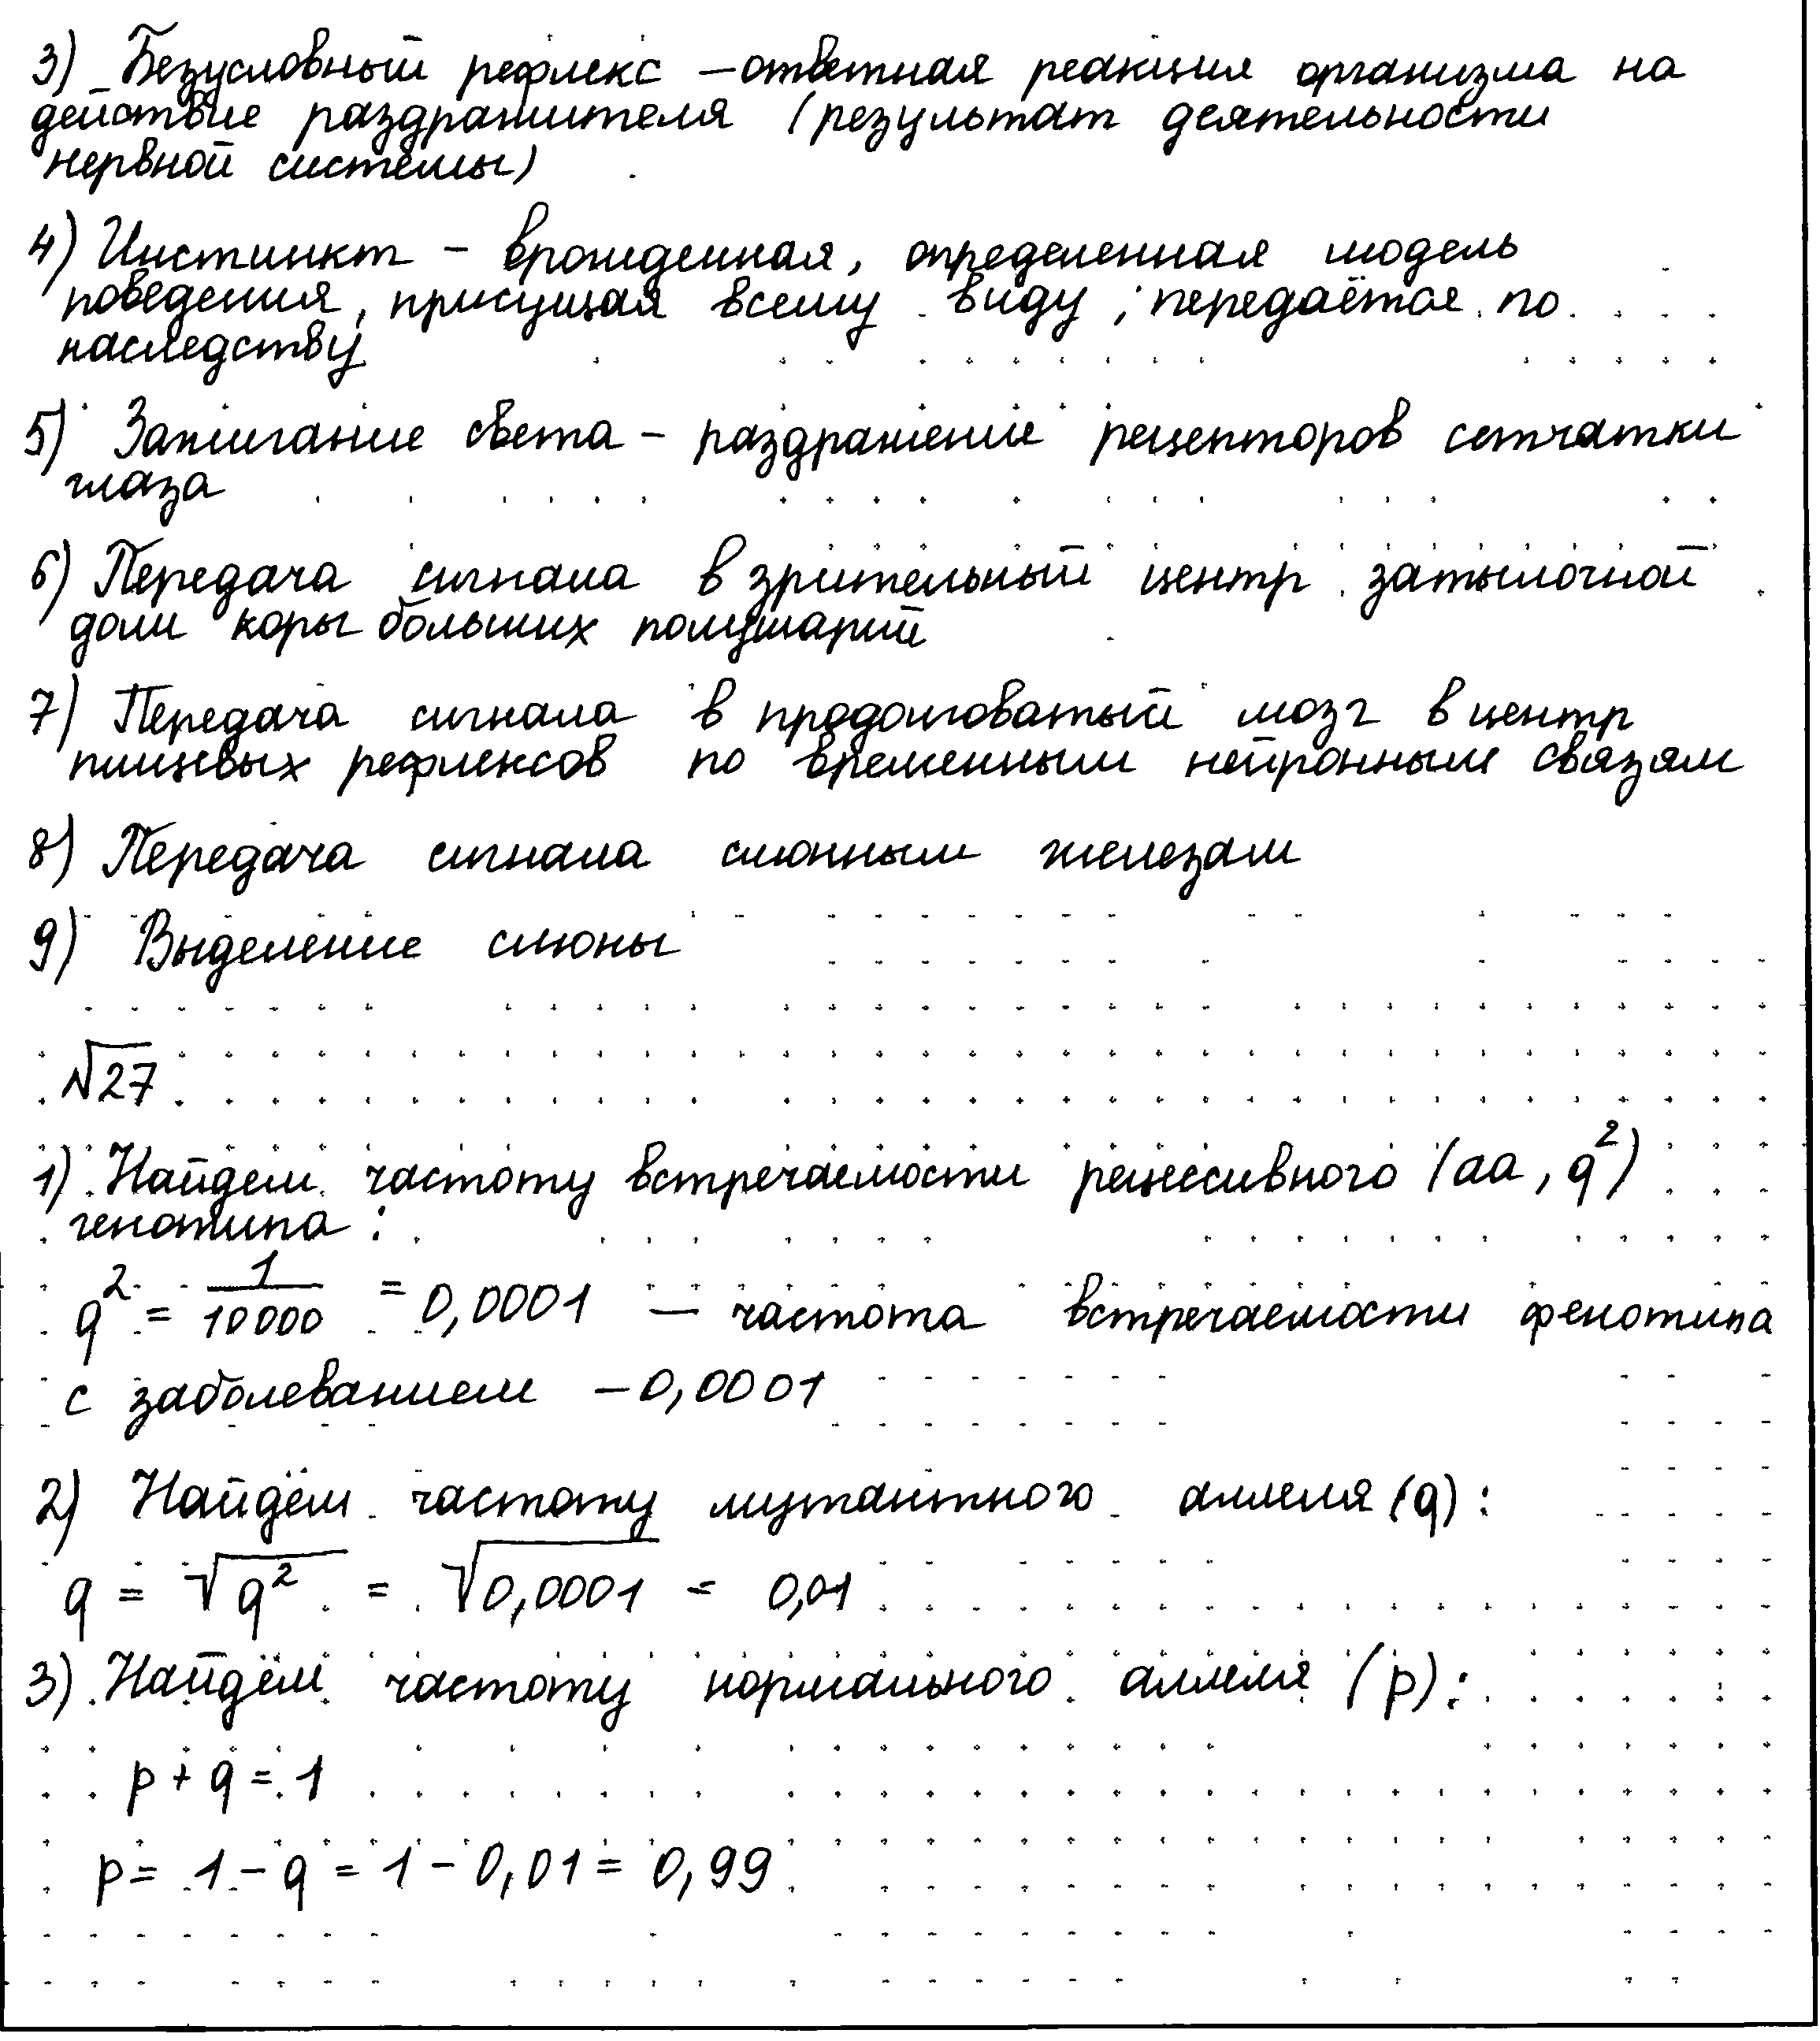 3) Безусловный рефлекс – ответная реакция организма на
действие раздражителя (результат деятельности
нервной системы)
4) Инстинкт – врожденная, определенная модель
поведения, присущая всему виду; передаётся по
наследству
5) Зажигание света – раздражение рецепторов сетчатки
глаза
6) Передача сигнала в зрительный центр затылочной
доли коры больших полушарий
7) Передача сигнала в продолговатый мозг в центр
пищевых рефлексов по временным нейронным связям
8) Передача сигнала слюнным железам
9) Выделение слюны
√27
1) Найдем частоту встречаемости рецессивного (aa, q²)
генотипа:
q² = 1/10000 = 0,0001 – частота встречаемости фенотипа
с заболеванием – 0,0001
2) Найдём частоту мутантного аллеля (q):
q = √q² = √0,0001 = 0,01
3) Найдём частоту нормального аллеля (p):
p + q = 1
p = 1 – q = 1 – 0,01 = 0,99